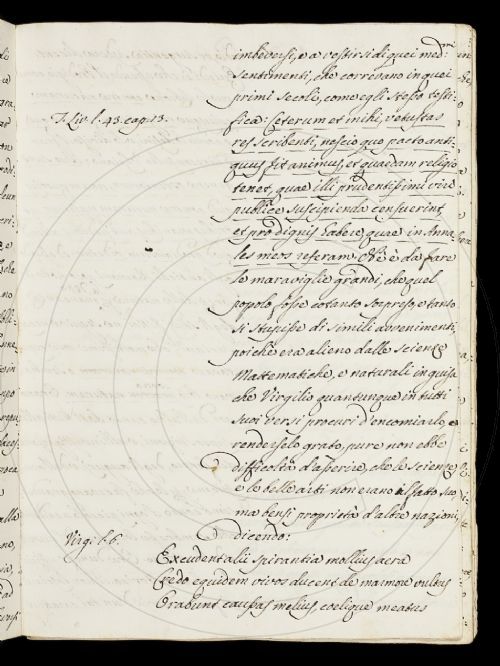 imbeversi, e a vestirsi di quei med.mi
sentimenti, che correvano in quei
primi secoli, come egli stesso testi-
T. Liv. l. 43. cap. 13.
fica: Ceterum et mihi, vetustas
res scribenti, nescio quo pacto anti-
quus fit animus, et quaedam religio
tenet, quae illi prudentissimi viri
publice suscipienda censuerint,
et pro dignis habere, quae in Anna
les meos referam. Nè è da fare
le maraviglie grandi, che quel
popolo fosse cotanto sorpreso, e tanto
si stupisse di simili avvenimenti,
poichè era alieno dalle scienze
Mattematiche, e naturali in guisa
che Virgilio quantunque in tutti
suoi versi procuri d'encomiarlo, e
renderselo grato, pure non ebbe
difficoltà d'asserire, che le scienze
e le belle arti non erano il fatto suo
ma bensì proprietà d'altre nazioni,
Virg. l. 6.
dicendo:
Excudent alii spirantia mollius aera
Credo equidem vivos ducent de marmore vultus
Orabunt causas melius, coelique meatus